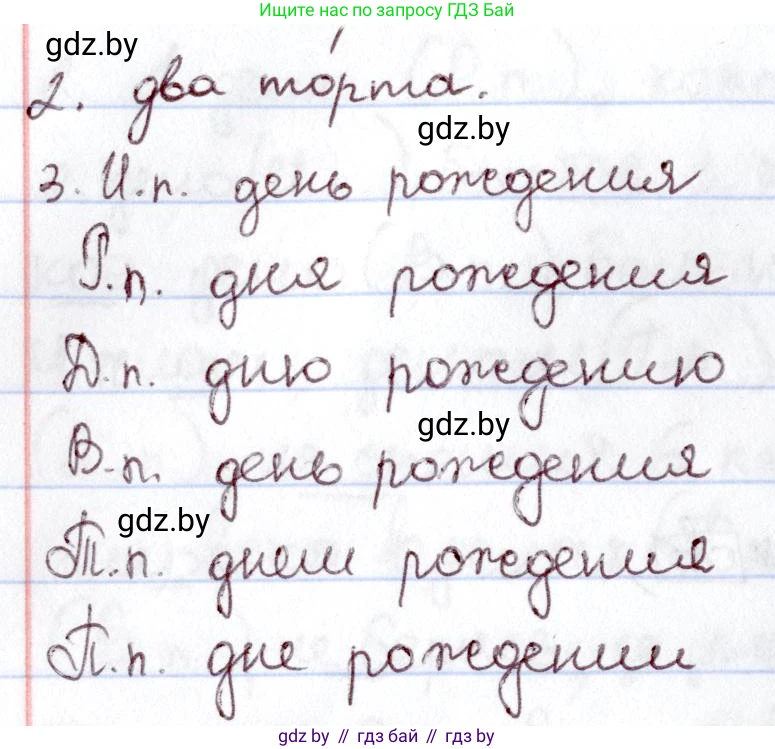 Ищите нас по запросу ГДЗ Бай
gdz.by
2. два то́рта.
gdz.by
3. И.п. день рождения
Р.п. дня рождения
Д.п. дню рождению
gdz.by
В.п. день рождения
gdz.by
Т.п. днем рождения
П.п. дне рождении
gdz.by // гдз бай // gdz.by